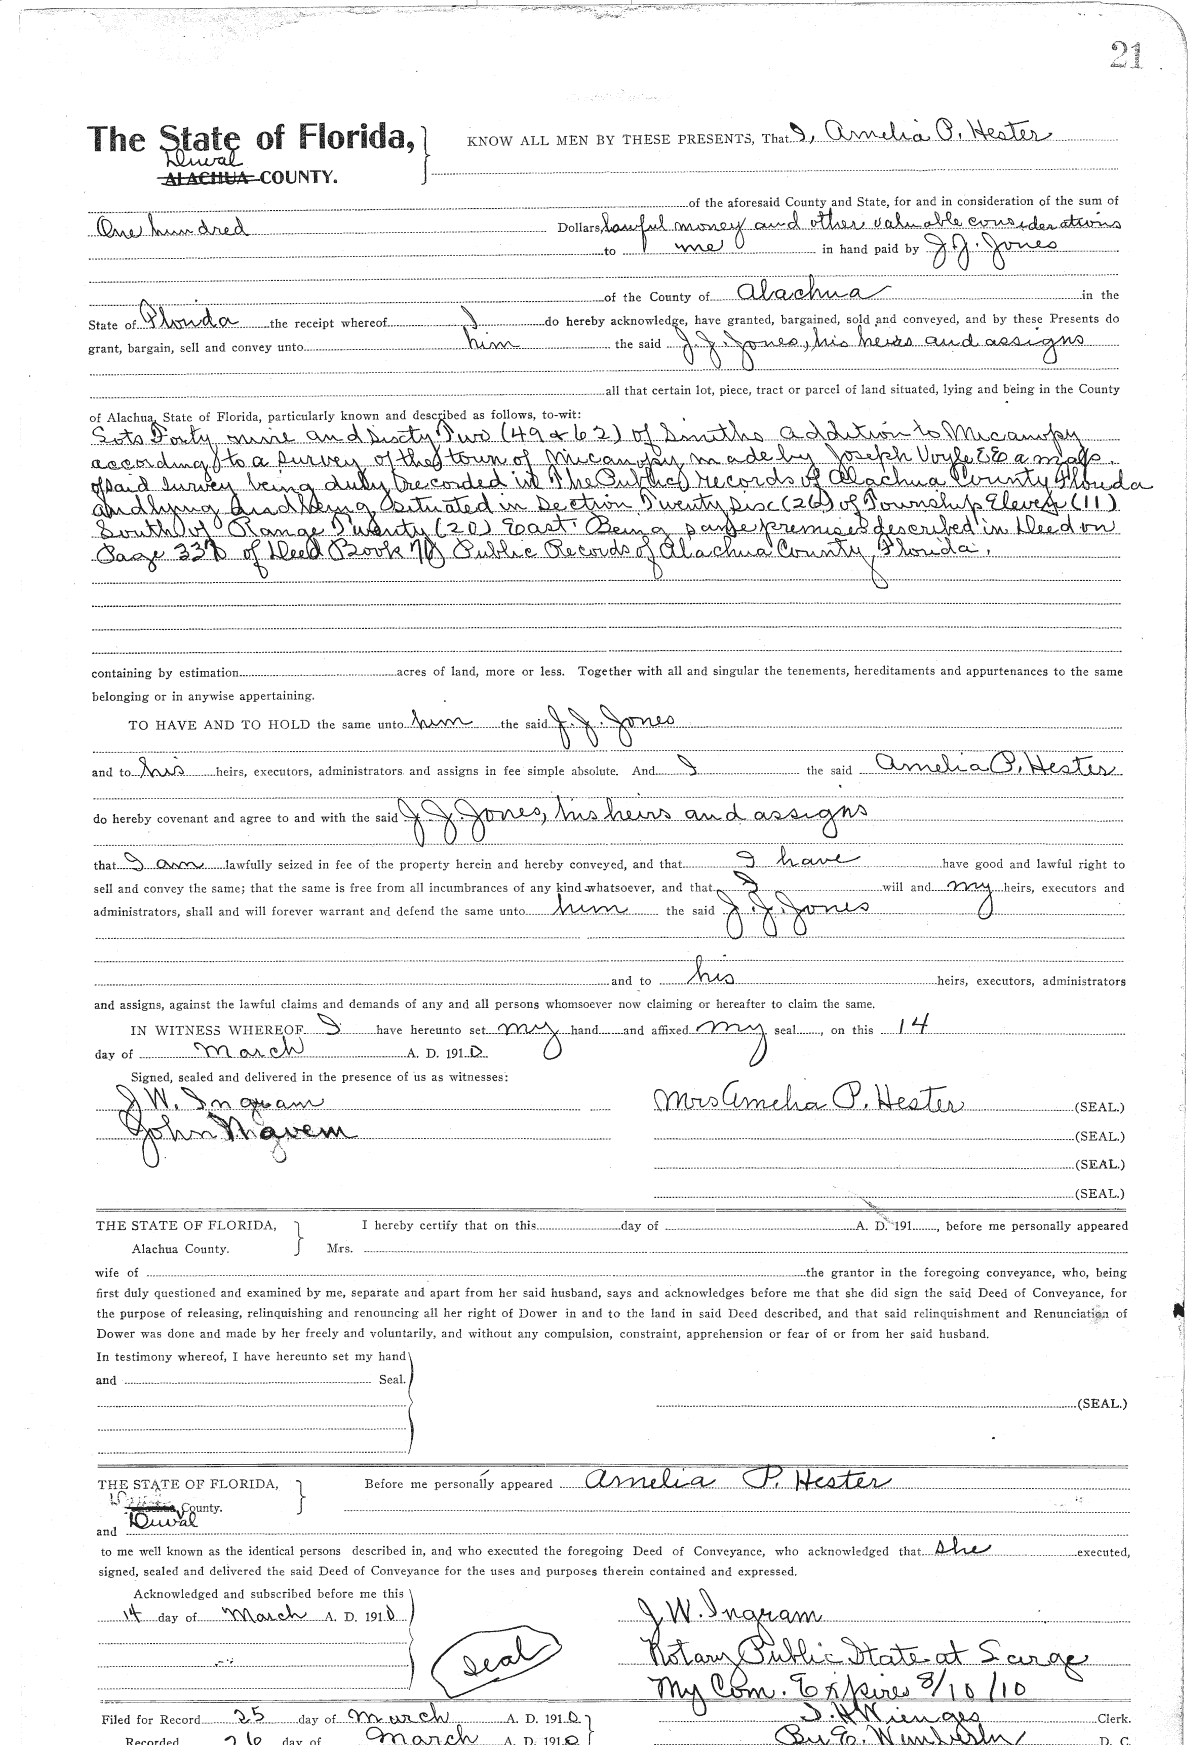 21
The State of Florida,
Duval
ALACHUA COUNTY.
KNOW ALL MEN BY THESE PRESENTS, That I, Amelia P. Hester
of the aforesaid County and State, for and in consideration of the sum of
One hundred Dollars, lawful money and other valuable considerations
to me in hand paid by J. J. Jones
of the County of Alachua in the
State of Florida the receipt whereof I do hereby acknowledge, have granted, bargained, sold and conveyed, and by these Presents do
grant, bargain, sell and convey unto him the said J. J. Jones, his heirs and assigns
all that certain lot, piece, tract or parcel of land situated, lying and being in the County
of Alachua, State of Florida, particularly known and described as follows, to-wit:
Lots Forty nine and Sixty Two (49 & 62) of Smiths addition to Micanopy
according to a survey of the town of Micanopy made by Joseph Voyle a map
of said survey being duly recorded in The Public records of Alachua County Florida
and lying and being situated in Section Twenty Six (26) of Township Eleven (11)
South of Range Twenty (20) East. Being same premises described in Deed on
Page of Deed Book Public Records of Alachua County Florida.
containing by estimation acres of land, more or less. Together with all and singular the tenements, hereditaments and appurtenances to the same
belonging or in anywise appertaining.
TO HAVE AND TO HOLD the same unto him the said J. J. Jones
and to his heirs, executors, administrators and assigns in fee simple absolute. And I the said Amelia P. Hester
do hereby covenant and agree to and with the said J. J. Jones, his heirs and assigns
that I am lawfully seized in fee of the property herein and hereby conveyed, and that I have have good and lawful right to
sell and convey the same; that the same is free from all incumbrances of any kind whatsoever, and that I will and my heirs, executors and
administrators, shall and will forever warrant and defend the same unto him the said J. J. Jones
and to his heirs, executors, administrators
and assigns, against the lawful claims and demands of any and all persons whomsoever now claiming or hereafter to claim the same.
IN WITNESS WHEREOF I have hereunto set my hand and affixed my seal, on this 14
day of March A. D. 1910.
Signed, sealed and delivered in the presence of us as witnesses:
J. W. Ingram Mrs Amelia P. Hester (SEAL.)
John (SEAL.)
(SEAL.)
(SEAL.)
THE STATE OF FLORIDA,
Alachua County.
I hereby certify that on this day of A. D. 191 , before me personally appeared
Mrs.
wife of the grantor in the foregoing conveyance, who, being
first duly questioned and examined by me, separate and apart from her said husband, says and acknowledges before me that she did sign the said Deed of Conveyance, for
the purpose of releasing, relinquishing and renouncing all her right of Dower in and to the land in said Deed described, and that said relinquishment and Renunciation of
Dower was done and made by her freely and voluntarily, and without any compulsion, constraint, apprehension or fear of or from her said husband.
In testimony whereof, I have hereunto set my hand
and Seal.
(SEAL.)
THE STATE OF FLORIDA,
Alachua County.
Duval
Before me personally appeared Amelia P. Hester
and
to me well known as the identical persons described in, and who executed the foregoing Deed of Conveyance, who acknowledged that she executed,
signed, sealed and delivered the said Deed of Conveyance for the uses and purposes therein contained and expressed.
Acknowledged and subscribed before me this
14 day of March A. D. 1910
Seal
J. W. Ingram
Notary Public State at Large
My Com. Expires 8/10/10
Filed for Record 25 day of March A. D. 1910.
Recorded 26 day of March A. D. 1910
S. H. Wienges Clerk.
By E. Wimberly D. C.